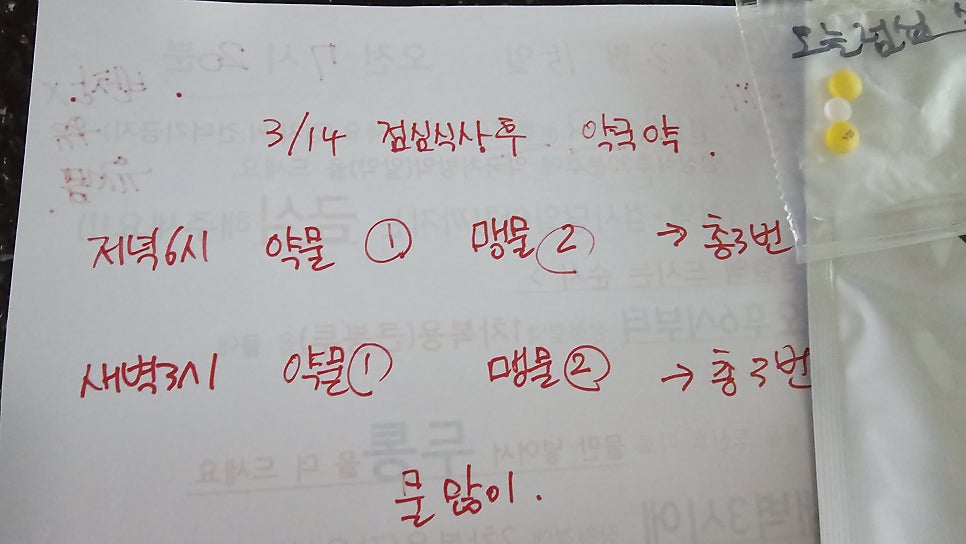 3/14 점심식사후 약국약.
오늘점심
저녁6시 약물 ① 맹물 ② → 총3번
새벽3시 약물 ① 맹물 ② → 총3번
물 많이.